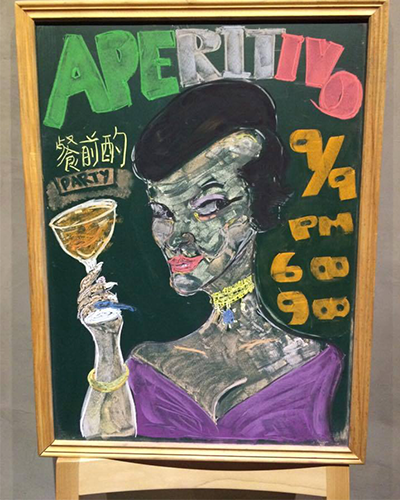 APERITIVO
餐前酌
PARTY
9/9
PM
6:00
9:00